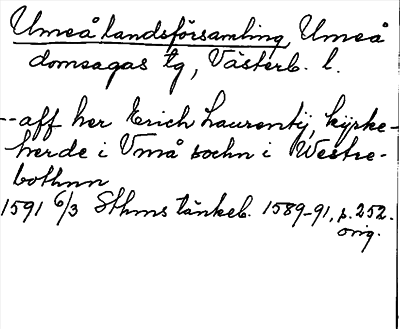 Umeå landsförsamling, Umeå
domsagas tg, Västerb. l.
--aff her Erich Laurentij, kyrke-
herde i Vmå sochn i Westre-
bothnn
1591 6/3 Sthms tänkeb. 1589-91, s. 252.
orig.